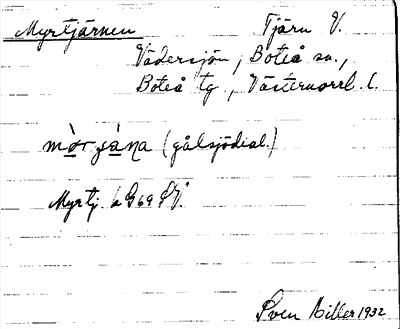 Myrtjärnen Tjärn V.
Vädersjön, Boteå sn.,
Boteå tg., Västernorrl. l.
(gålsjödial.)
Myrtj.
Sven Biller 1932